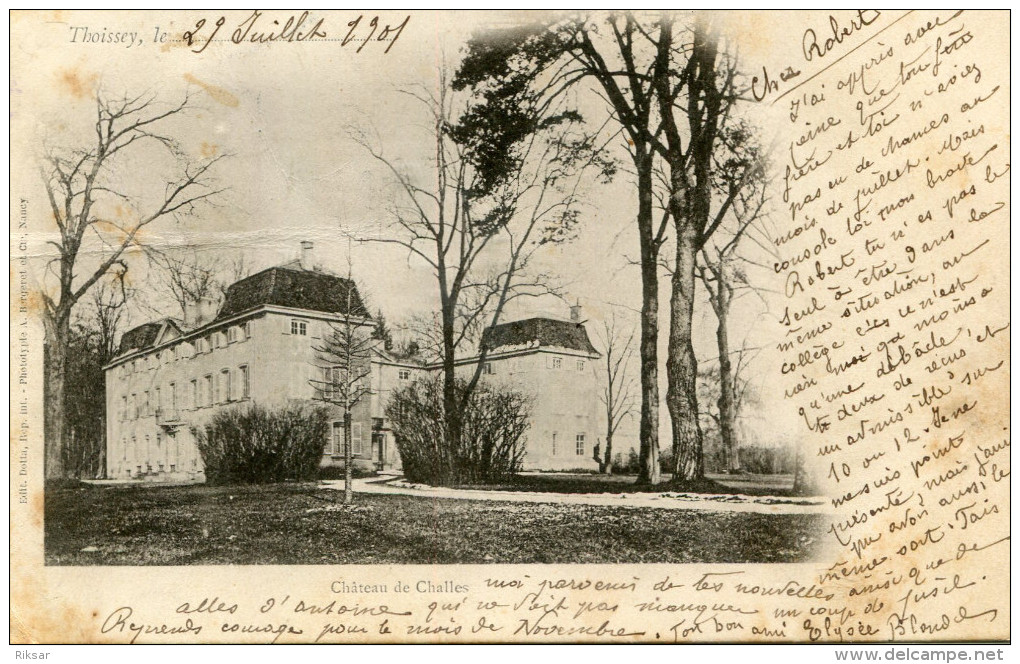 Thoissey, le 29 Juillet 1901
Chez Robert
J'ai appris avec
peine que ton
frère et toi n'avez
pas eu de chances au
mois de juillet. Mais
console toi mon brave
Robert tu n'es pas le
seul à être dans la
même situation, au
collège ce n'est
qu'une débâcle
2 deux de reçus et
un admissible sur
10 ou 12. Je ne
me suis point
présenté, mais j'aurai
pu avoir aussi le
même sort. Fais
moi parvenir de tes nouvelles ainsi que de
celles d'Antoine qui ne doit pas manquer un coup de fusil
Reprends courage pour le mois de Novembre. Ton bon ami Elysée Blonde
Château de Challes
Edit. Dotta, Rep. int. - Phototypie A. Bergeret et Cie, Nancy
Riksar
http://riksar.delcampe.net